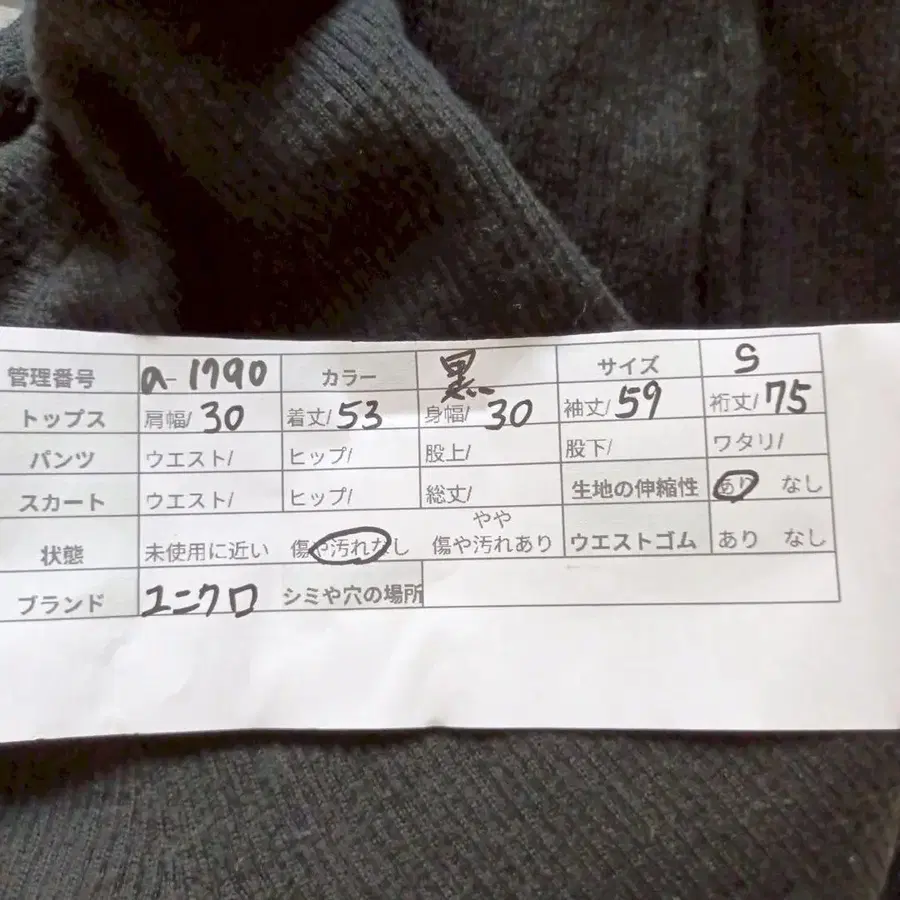 管理番号 a-1990 カラー 黒 サイズ S
トップス 肩幅/30 着丈/53 身幅/30 袖丈/59 裄丈/75
パンツ ウエスト/ ヒップ/ 股上/ 股下/ ワタリ/
スカート ウエスト/ ヒップ/ 総丈/ 生地の伸縮性 あり なし
状態 未使用に近い 傷や汚れなし やや傷や汚れあり ウエストゴム あり なし
ブランド ユニクロ シミや穴の場所